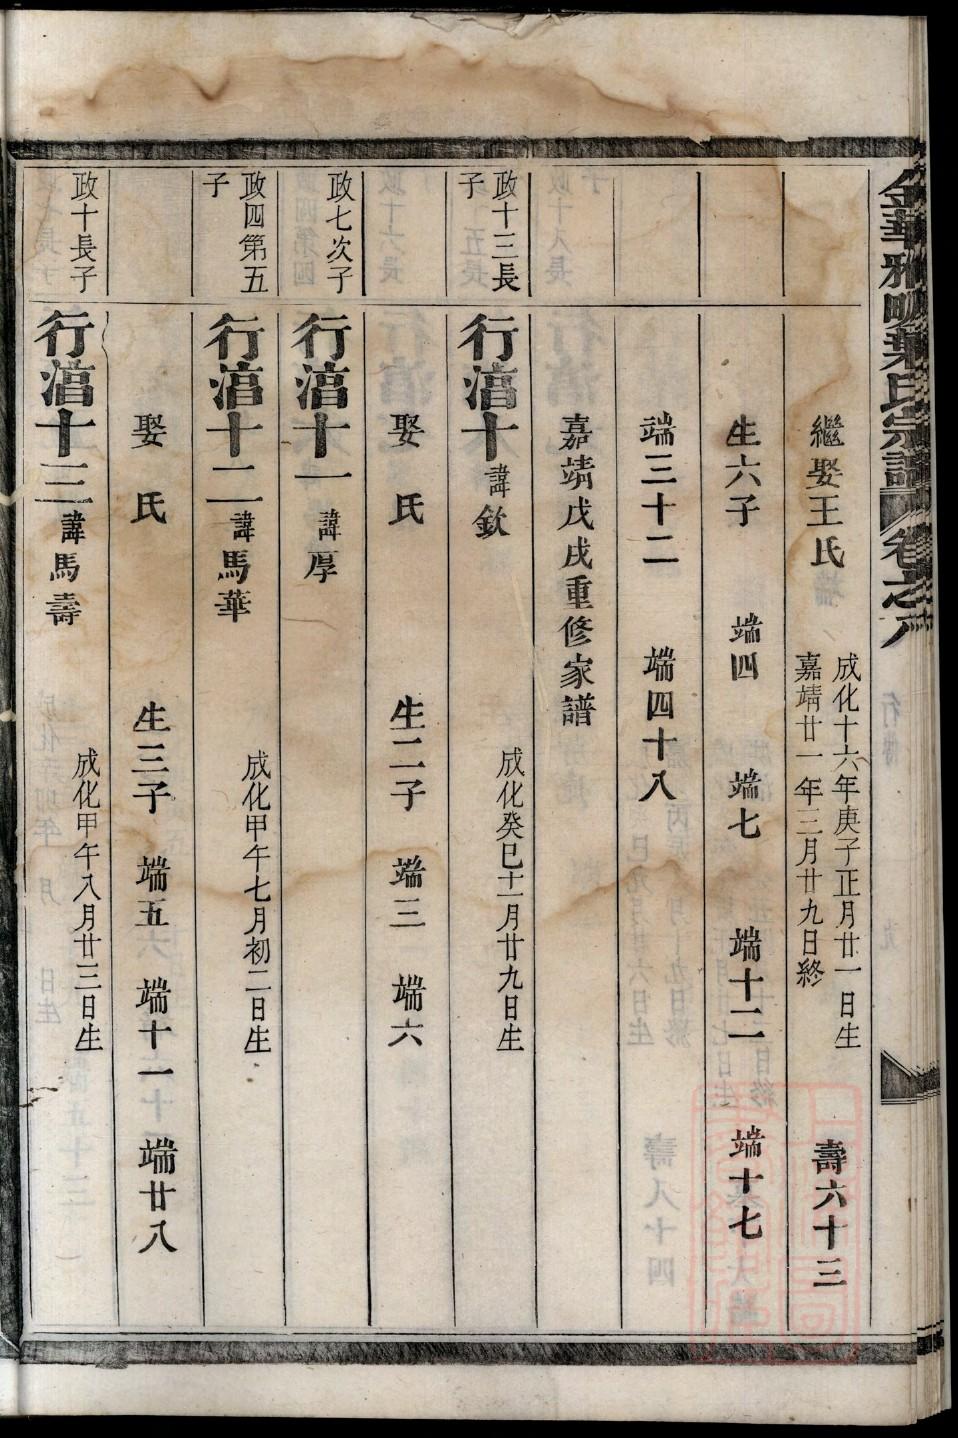 金華雅畈葉氏宗譜 卷之八
繼娶王氏 成化十六年庚子正月廿一日生
嘉靖廿一年三月廿九日終 壽六十三
生六子 端四 端七 端十二 端十七
端三十二 端四十八
嘉靖戊戌重修家譜
政十三長子
行湻十 諱欽 成化癸巳十一月廿九日生
娶 氏 生二子 端三 端六
政七次子
行湻十一 諱厚
政四第五子
行湻十二 諱馬華 成化甲午七月初二日生
娶 氏 生三子 端五 端十一 端廿八
政十長子
行湻十三 諱馬壽 成化甲午八月廿三日生